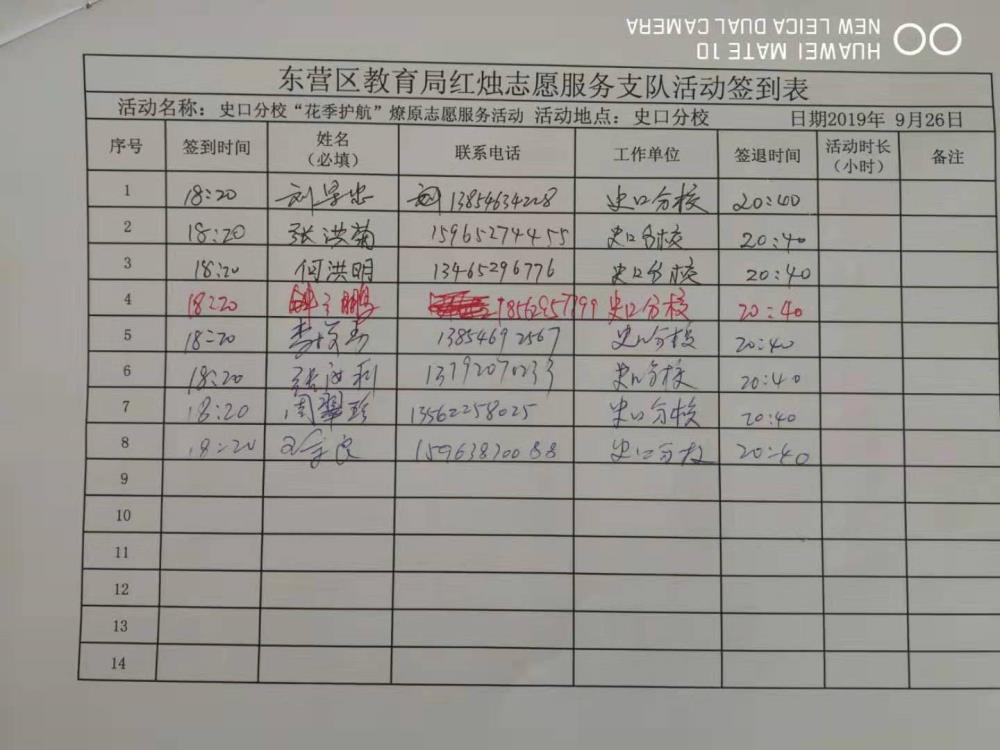 HUAWEI MATE 10
NEW LEICA DUAL CAMERA
东营区教育局红烛志愿服务支队活动签到表
活动名称：史口分校“花季护航”燎原志愿服务活动 活动地点：史口分校 日期2019年 9月26日
序号 签到时间 姓名（必填） 联系电话 工作单位 签退时间 活动时长（小时） 备注
1 18:20 13854634228 史口分校 20:40
2 18:20 张洪菊 15965274455 史口分校 20:40
3 18:20 何洪明 13465296776 史口分校 20:40
4 18:20 史口分校 20:40
5 18:20 13854692567 史口分校 20:40
6 18:20 史口分校 20:40
7 18:20 周翠珍 13562258025 史口分校 20:40
8 18:20 史口分校 20:40
9
10
11
12
13
14